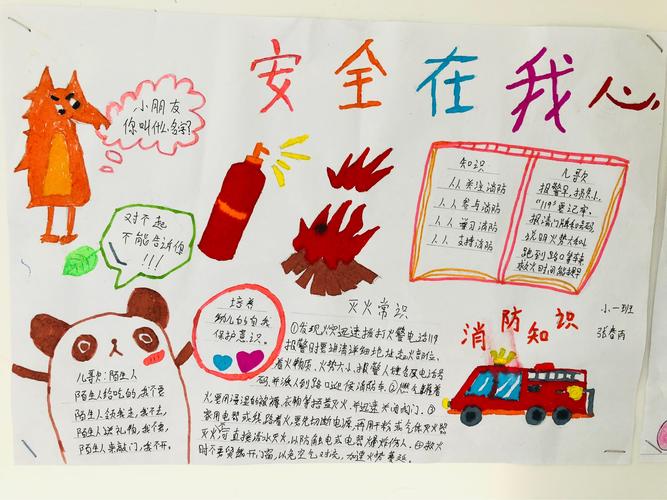 安全在我心
小朋友
你叫什么名字?
对不起
不能告诉你
!!!
知识
人人关注消防
人人参与消防
人人学习消防
人人支持消防
儿歌
报警早,损失小,
"119"要记牢,
报清门牌和号码
说明火势大和小
跑到路口等车来
救火时间能提早
小一班
张香雨
培养
幼儿的自我
保护意识。
灭火常识
①发现火灾迅速拨打火警电话119
报警时要讲清详细地址起火部位、
着火物质、火势大小、报警人姓名及电话号
码,并派人到路口迎候消防车。②燃气罐着
火要用浸湿的被褥、衣物等捂盖灭火,并迅速关闭阀门。③
家用电器或线路着火要先切断电源,再用干粉或气体灭火器
灭火,直接泼水灭火,以防触电或电器爆炸伤人。④救火
时不要贸然开门窗,以免空气对流,加速火势蔓延。
消防知识
儿歌:陌生人
陌生人给吃的,我不要
陌生人领我走,我不去,
陌生人送礼物,我不拿,
陌生人来敲门,我不开。